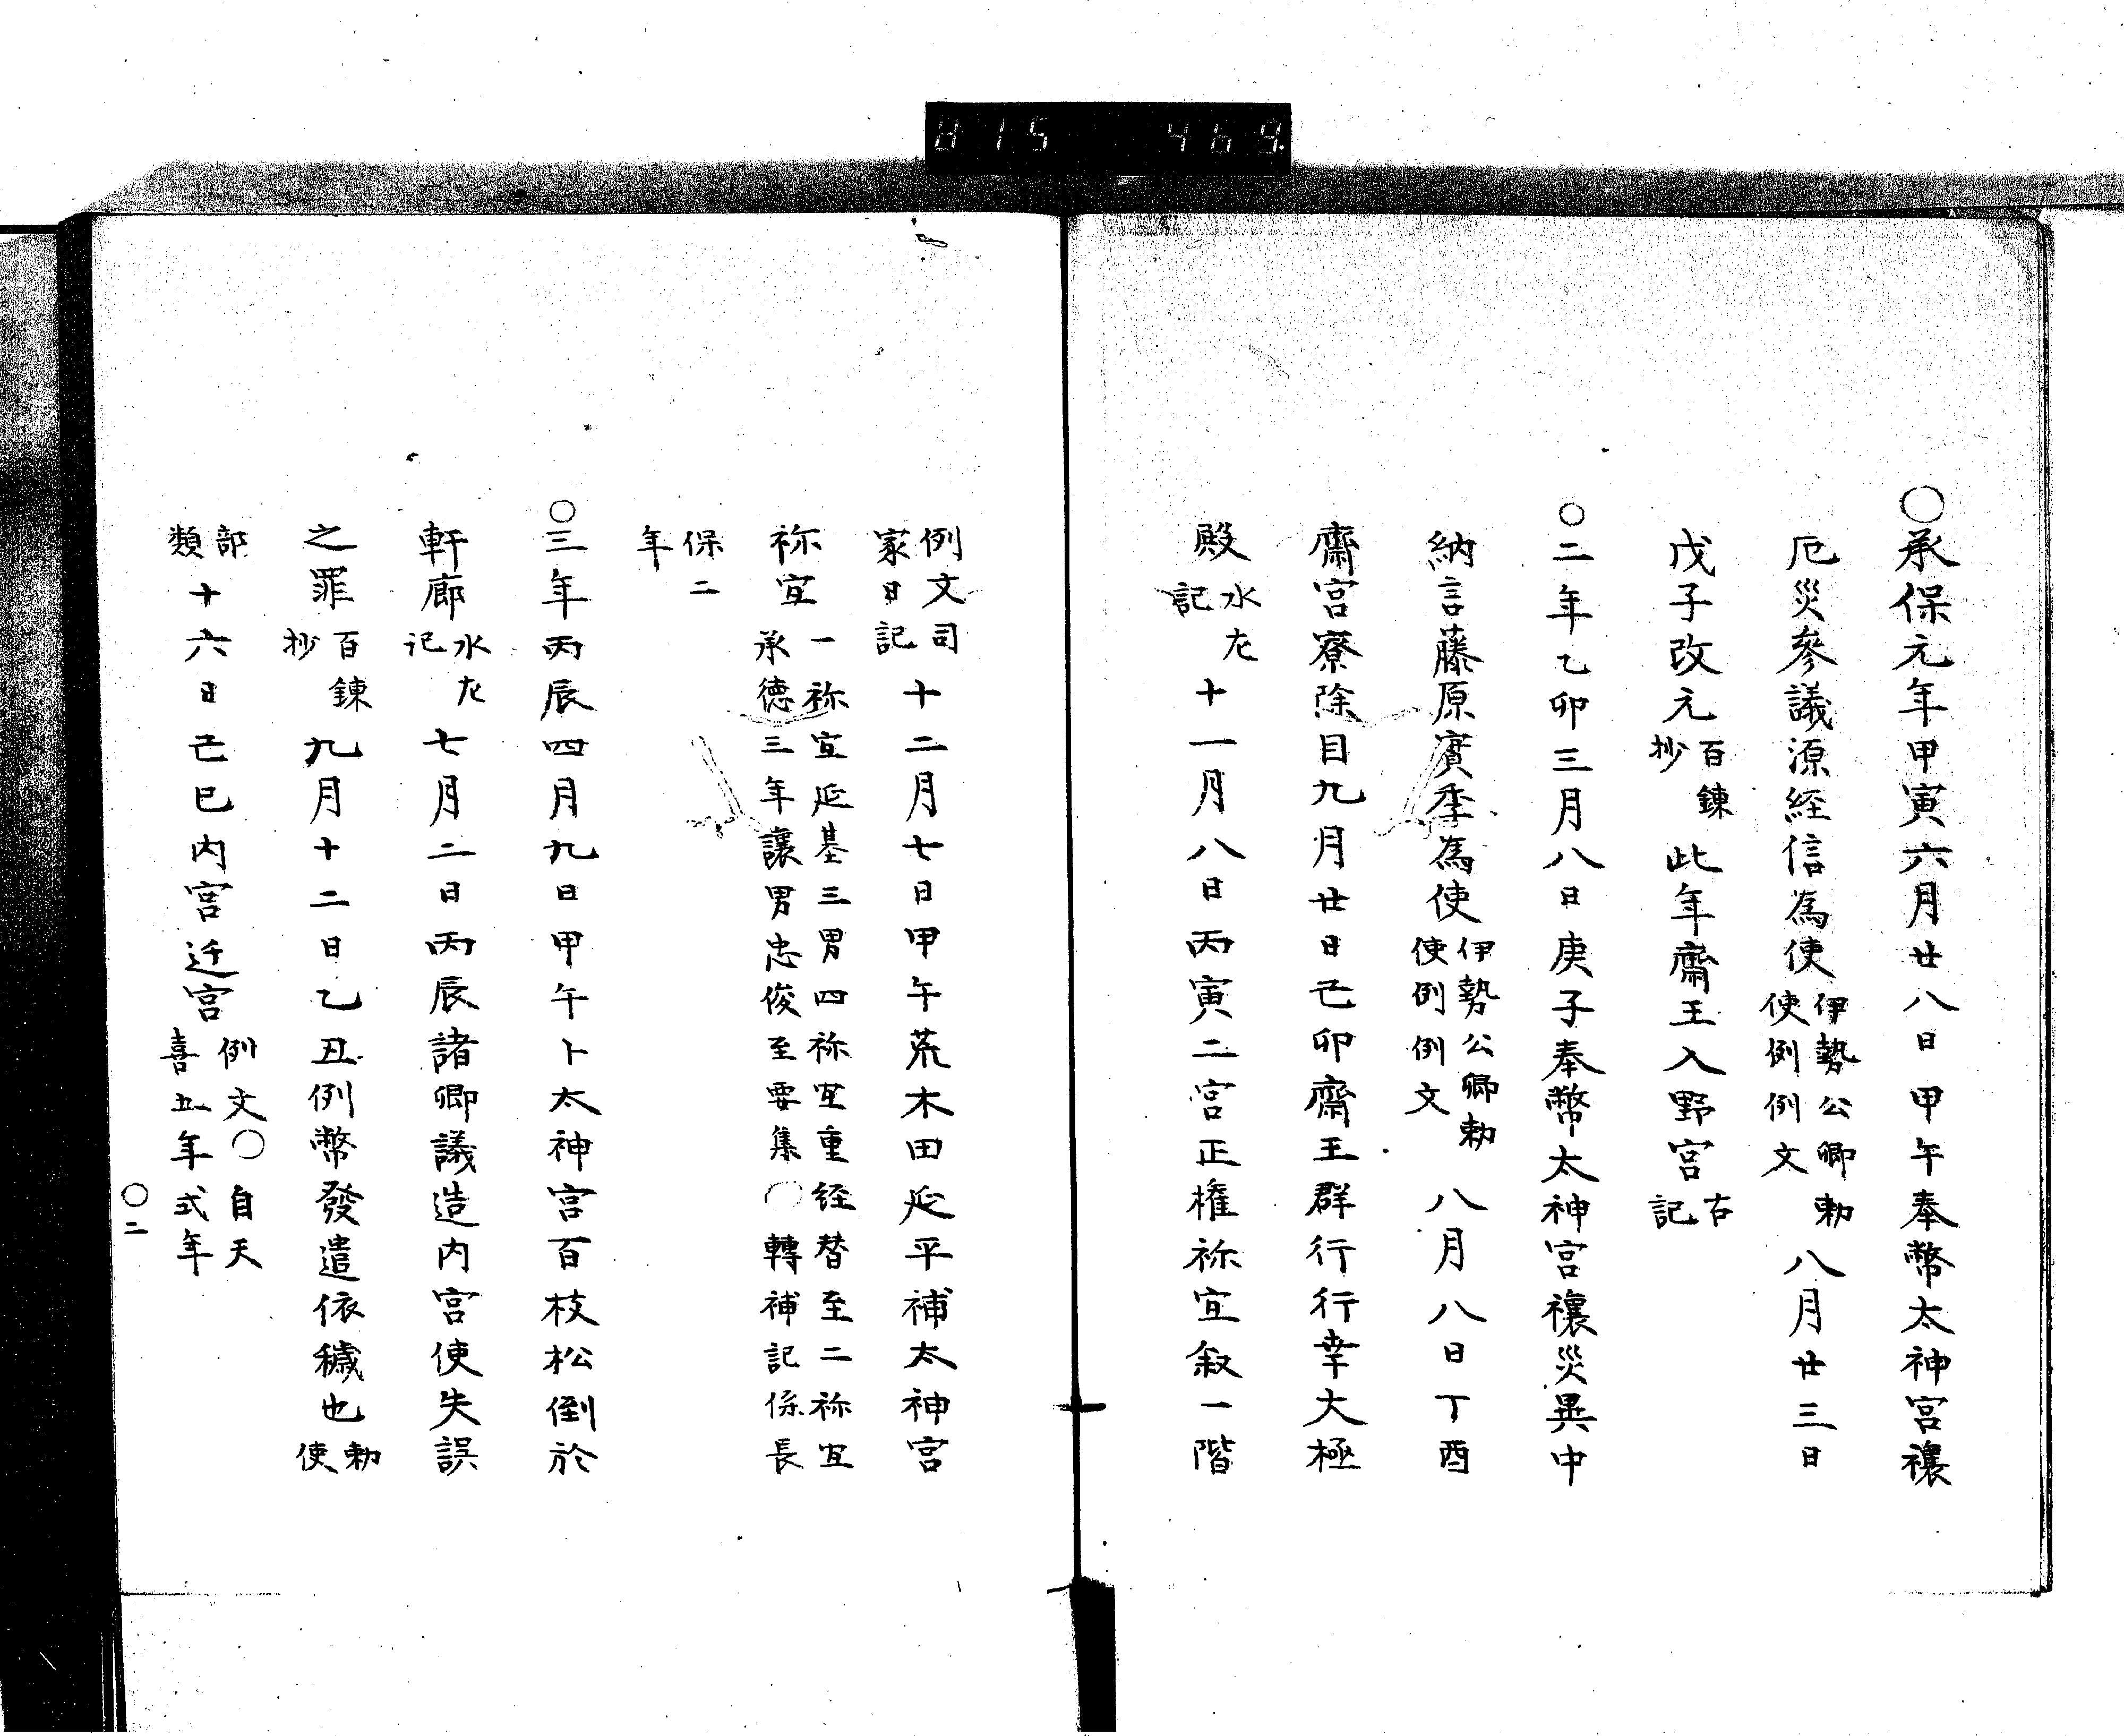 815 469
○承保元年甲寅六月廿八日甲午奉幣太神宮禳
厄災參議源経信為使伊勢公卿勅使例例文八月廿三日
戊子改元百錬抄此年齋王入野宮古記
○二年乙卯三月八日庚子奉幣太神宮禳災異中
納言藤原實季為使伊勢公卿勅使例例文八月八日丁酉
齋宮寮除目九月廿日己卯齋王群行行幸大極
殿水左記十一月八日丙寅二宮正権祢宜叙一階
例文司家日記十二月七日甲午荒木田延平補太神宮
祢宜一祢宜延基三男四祢宜重経替至二祢宜承德三年讓男忠俊至要集○轉補記係長
保二年
○三年丙辰四月九日甲午卜太神宮百枝松倒於
軒廊水左记七月二日丙辰諸卿議造内宮使失誤
之罪百錬抄九月十二日乙丑例幣發遣依穢也勅使
部類十六日己巳内宮迁宮例文○自天喜五年式年
○二